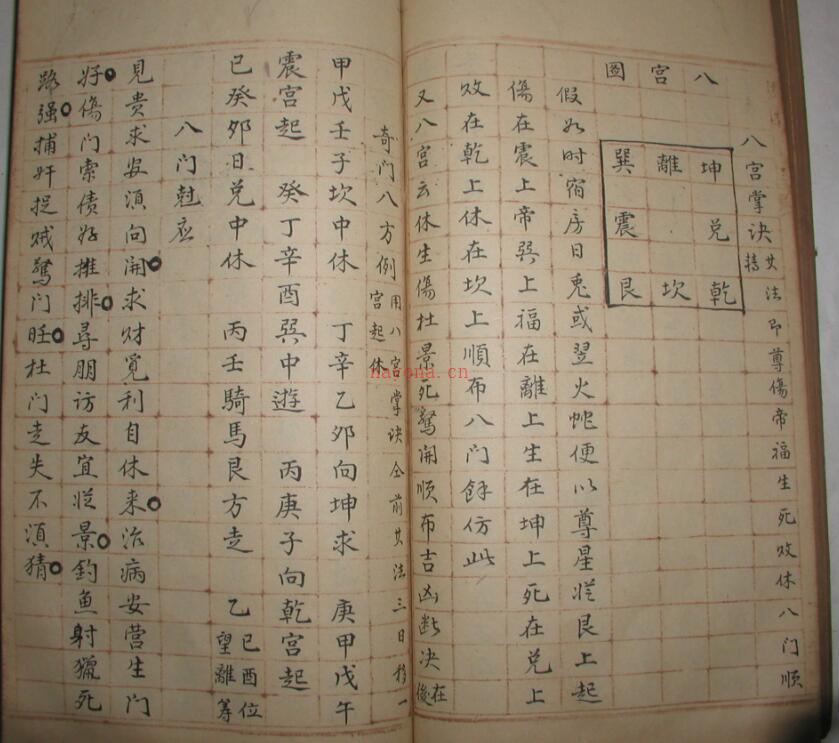 八宮掌诀 其法即尊傷帝福生死败休八门順转
八宮圖
巽離坤
震兑
艮坎乾
假如时宿房日兎或翌火蛇便以尊星从艮上起
傷在震上帝巽上福在離上生在坤上死在兑上
败在乾上休在坎上順布八门餘仿此
又八宮云休生傷杜景死驚開順布吉凶断决在後
奇门八方例 用八宮掌诀仝前其法三日移一宮起休
甲戊壬子坎中休 丁辛乙夘向坤求 庚甲戊午
震宮起 癸丁辛酉巽中遊 丙庚子向乾宮起
已癸夘日兑中休 丙壬騎馬艮方走 乙已酉位望離筹
八门尅应
見貴求安須向開。求财覓利自休来。治病安营生门
好。傷门索债好推排。尋朋访友宜从景。釣魚射獵死
路强。捕奸捉贼驚门旺。杜门走失不須猜。
hayona.cn